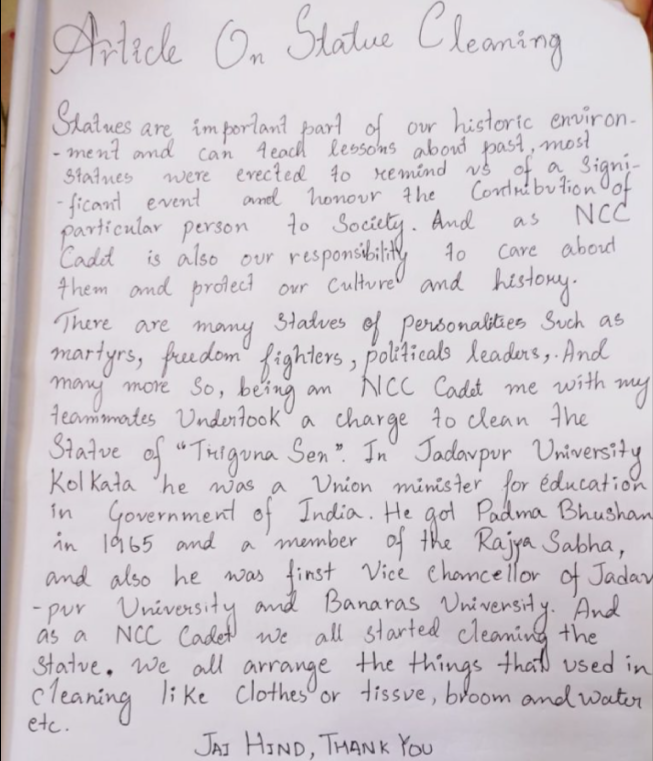 Article On Statue Cleaning
Statues are important part of our historic environ-
-ment and can teach lessons about past, most
statues were erected to remind us of a Signi-
-ficant event and honour the Contribution of
particular person to Society. And as NCC
Cadet is also our responsibility to care about
them and protect our Culture and history.
There are many Statues of personalities Such as
martyrs, freedom fighters, politicals leaders,. And
many more So, being an NCC Cadet me with my
teammates Undertook a charge to clean the
Statue of "Triguna Sen". In Jadavpur University
Kolkata he was a Union minister for education
in Government of India. He got Padma Bhushan
in 1965 and a member of the Rajya Sabha,
and also he was first Vice Chancellor of Jadav
-pur University and Banaras University. And
as a NCC Cadet we all started cleaning the
Statue. We all arrange the things that used in
cleaning like Clothes or tissue, broom and Water
etc.
JAI HIND, THANK YOU